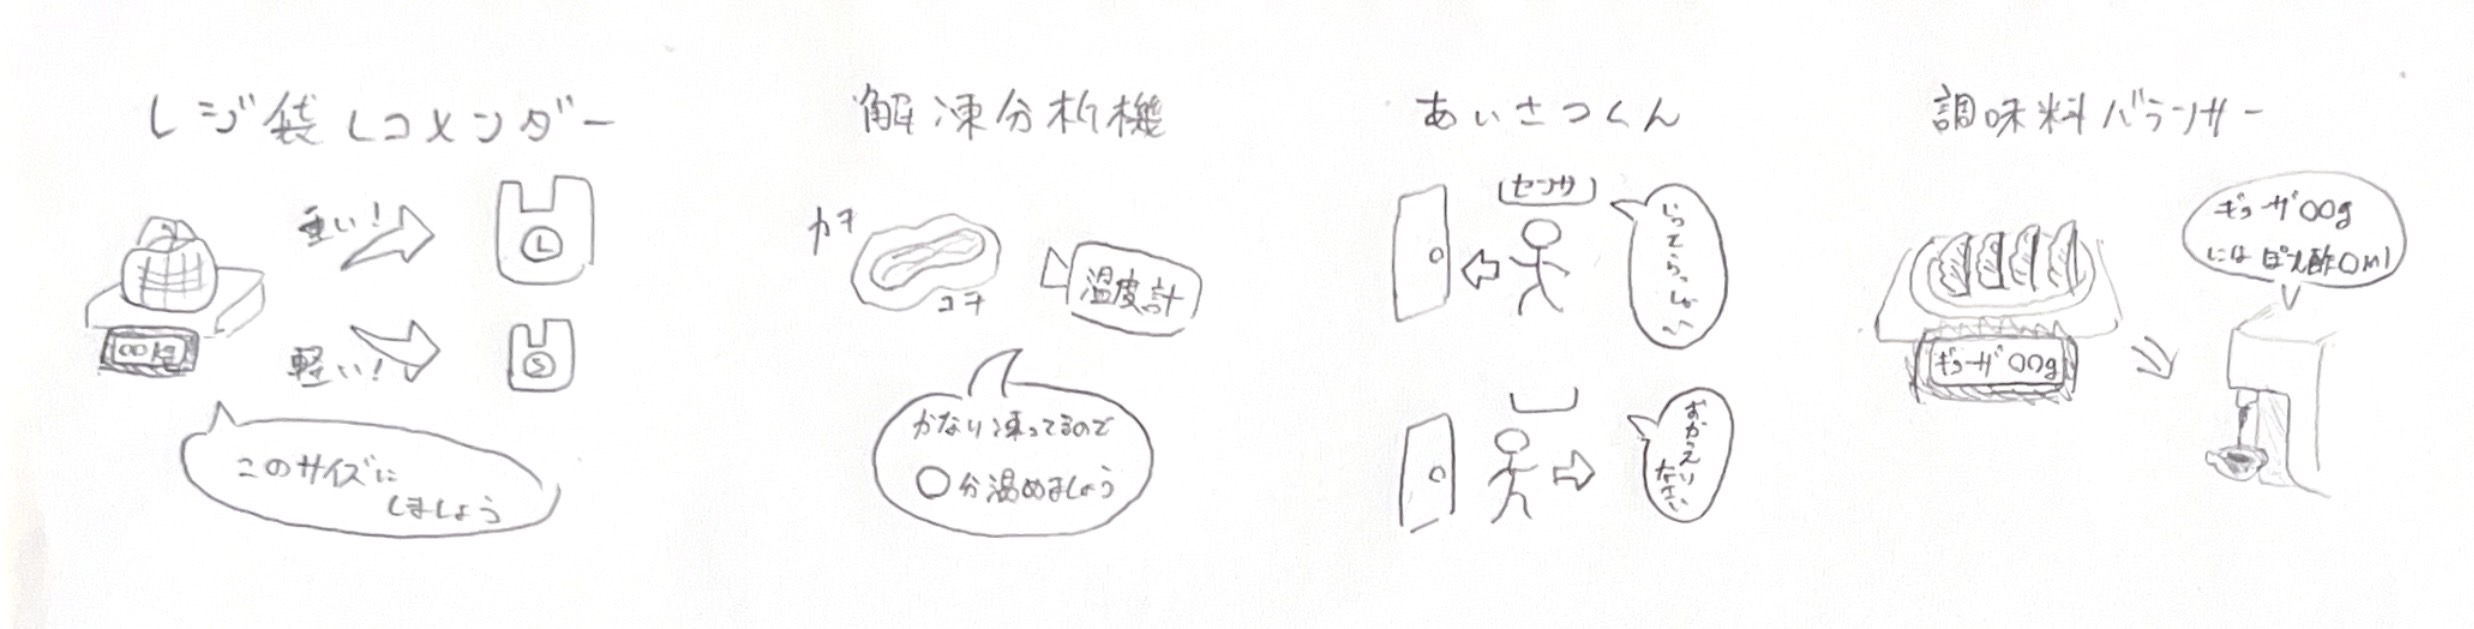 レジ袋レコメンダー
重い!
L
軽い!
S
このサイズに
しましょう
解凍分析機
カチ
コチ
温度計
かなり凍ってるので
○分温めましょう
あいさつくん
センサ
いってらっしゃい
おかえり
なさい
調味料バランサー
ギョーザ○○g
ギョーザ○○g
にはぽん酢○ml